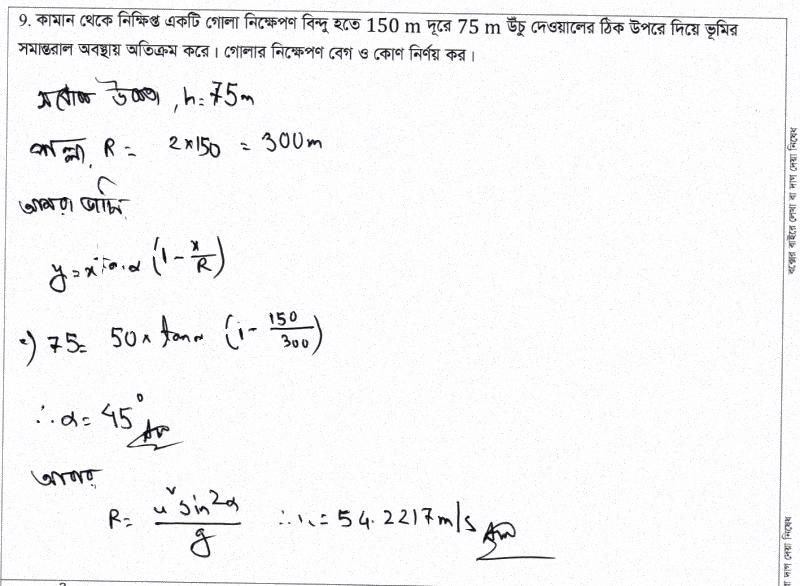 9. কামান থেকে নিক্ষিপ্ত একটি গোলা নিক্ষেপণ বিন্দু হতে 150 m দূরে 75 m উঁচু দেওয়ালের ঠিক উপরে দিয়ে ভূমির
সমান্তরাল অবস্থায় অতিক্রম করে। গোলার নিক্ষেপণ বেগ ও কোণ নির্ণয় কর।
সর্বোচ্চ উচ্চতা, h = 75m
পাল্লা, R = 2×150 = 300m
আমরা জানি,
y = x tanα (1 - x/R)
⇒) 75 = 50 × tanα (1 - 150/300)
∴ α = 45° Ans
আবার,
R = u² sin2α / g ∴ u = 54.2217 m/s Ans
বক্সের বাইরে লেখা বা দাগ দেয়া নিষেধ
বা দাগ দেয়া নিষেধ